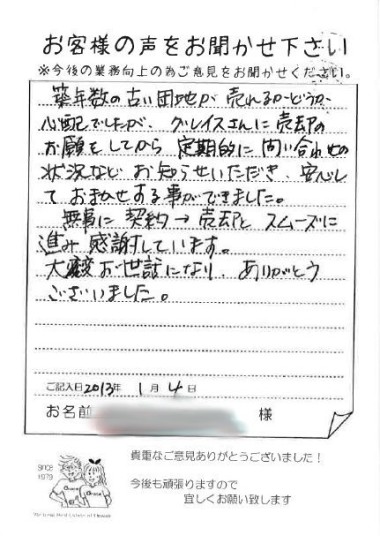 お客様の声をお聞かせ下さい
※今後の業務向上の為ご意見をお聞かせください。
築年数の古い団地が売れるかどうか
心配でしたが、グレイスさんに売却の
お願をしてから定期的に問い合わせの
状況などお知らせいただき、安心し
ておまかせする事ができました。
無事に契約→売却とスムーズに
進み感謝しています。
大変お世話になり、ありがとう
ございました。
ご記入日2013年 1月 4日
お名前 様
SINCE
1979
貴重なご意見ありがとうございました!
今後も頑張りますので
宜しくお願い致します